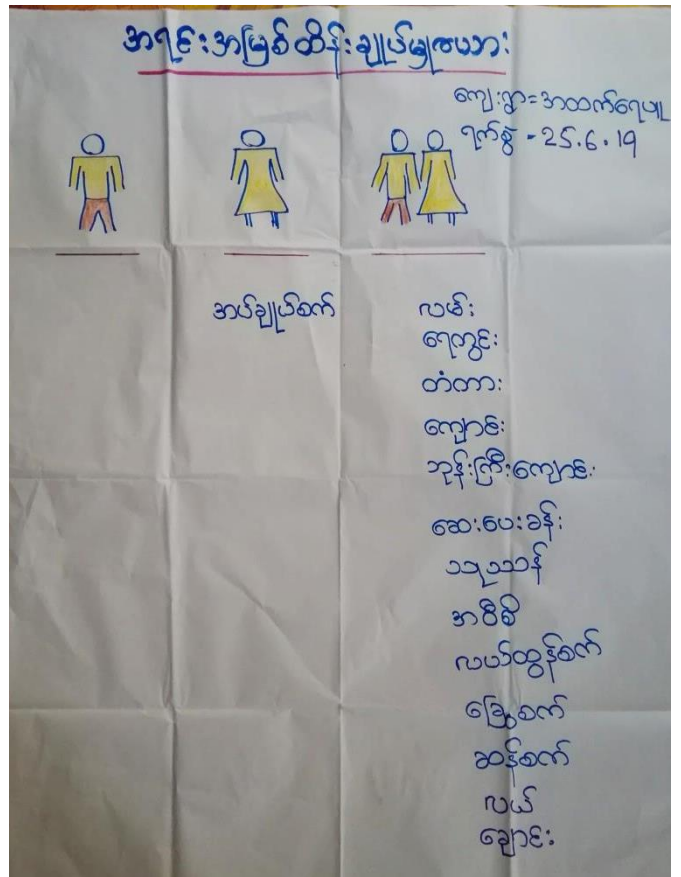 အရင်းအမြစ်ထိန်းချုပ်မှုဇယား
ကျေးရွာ=အထက်ရေပူ
ရက်စွဲ - 25.6.19
အပ်ချုပ်စက်
လမ်း
ရေတွင်း
တံတား
ကျောင်း
ဘုန်းကြီးကျောင်း
ဆေးပေးခန်း
သုသာန်
အစီစီ
လယ်ထွန်စက်
ခြွေစက်
ဆန်စက်
လယ်
ချောင်း